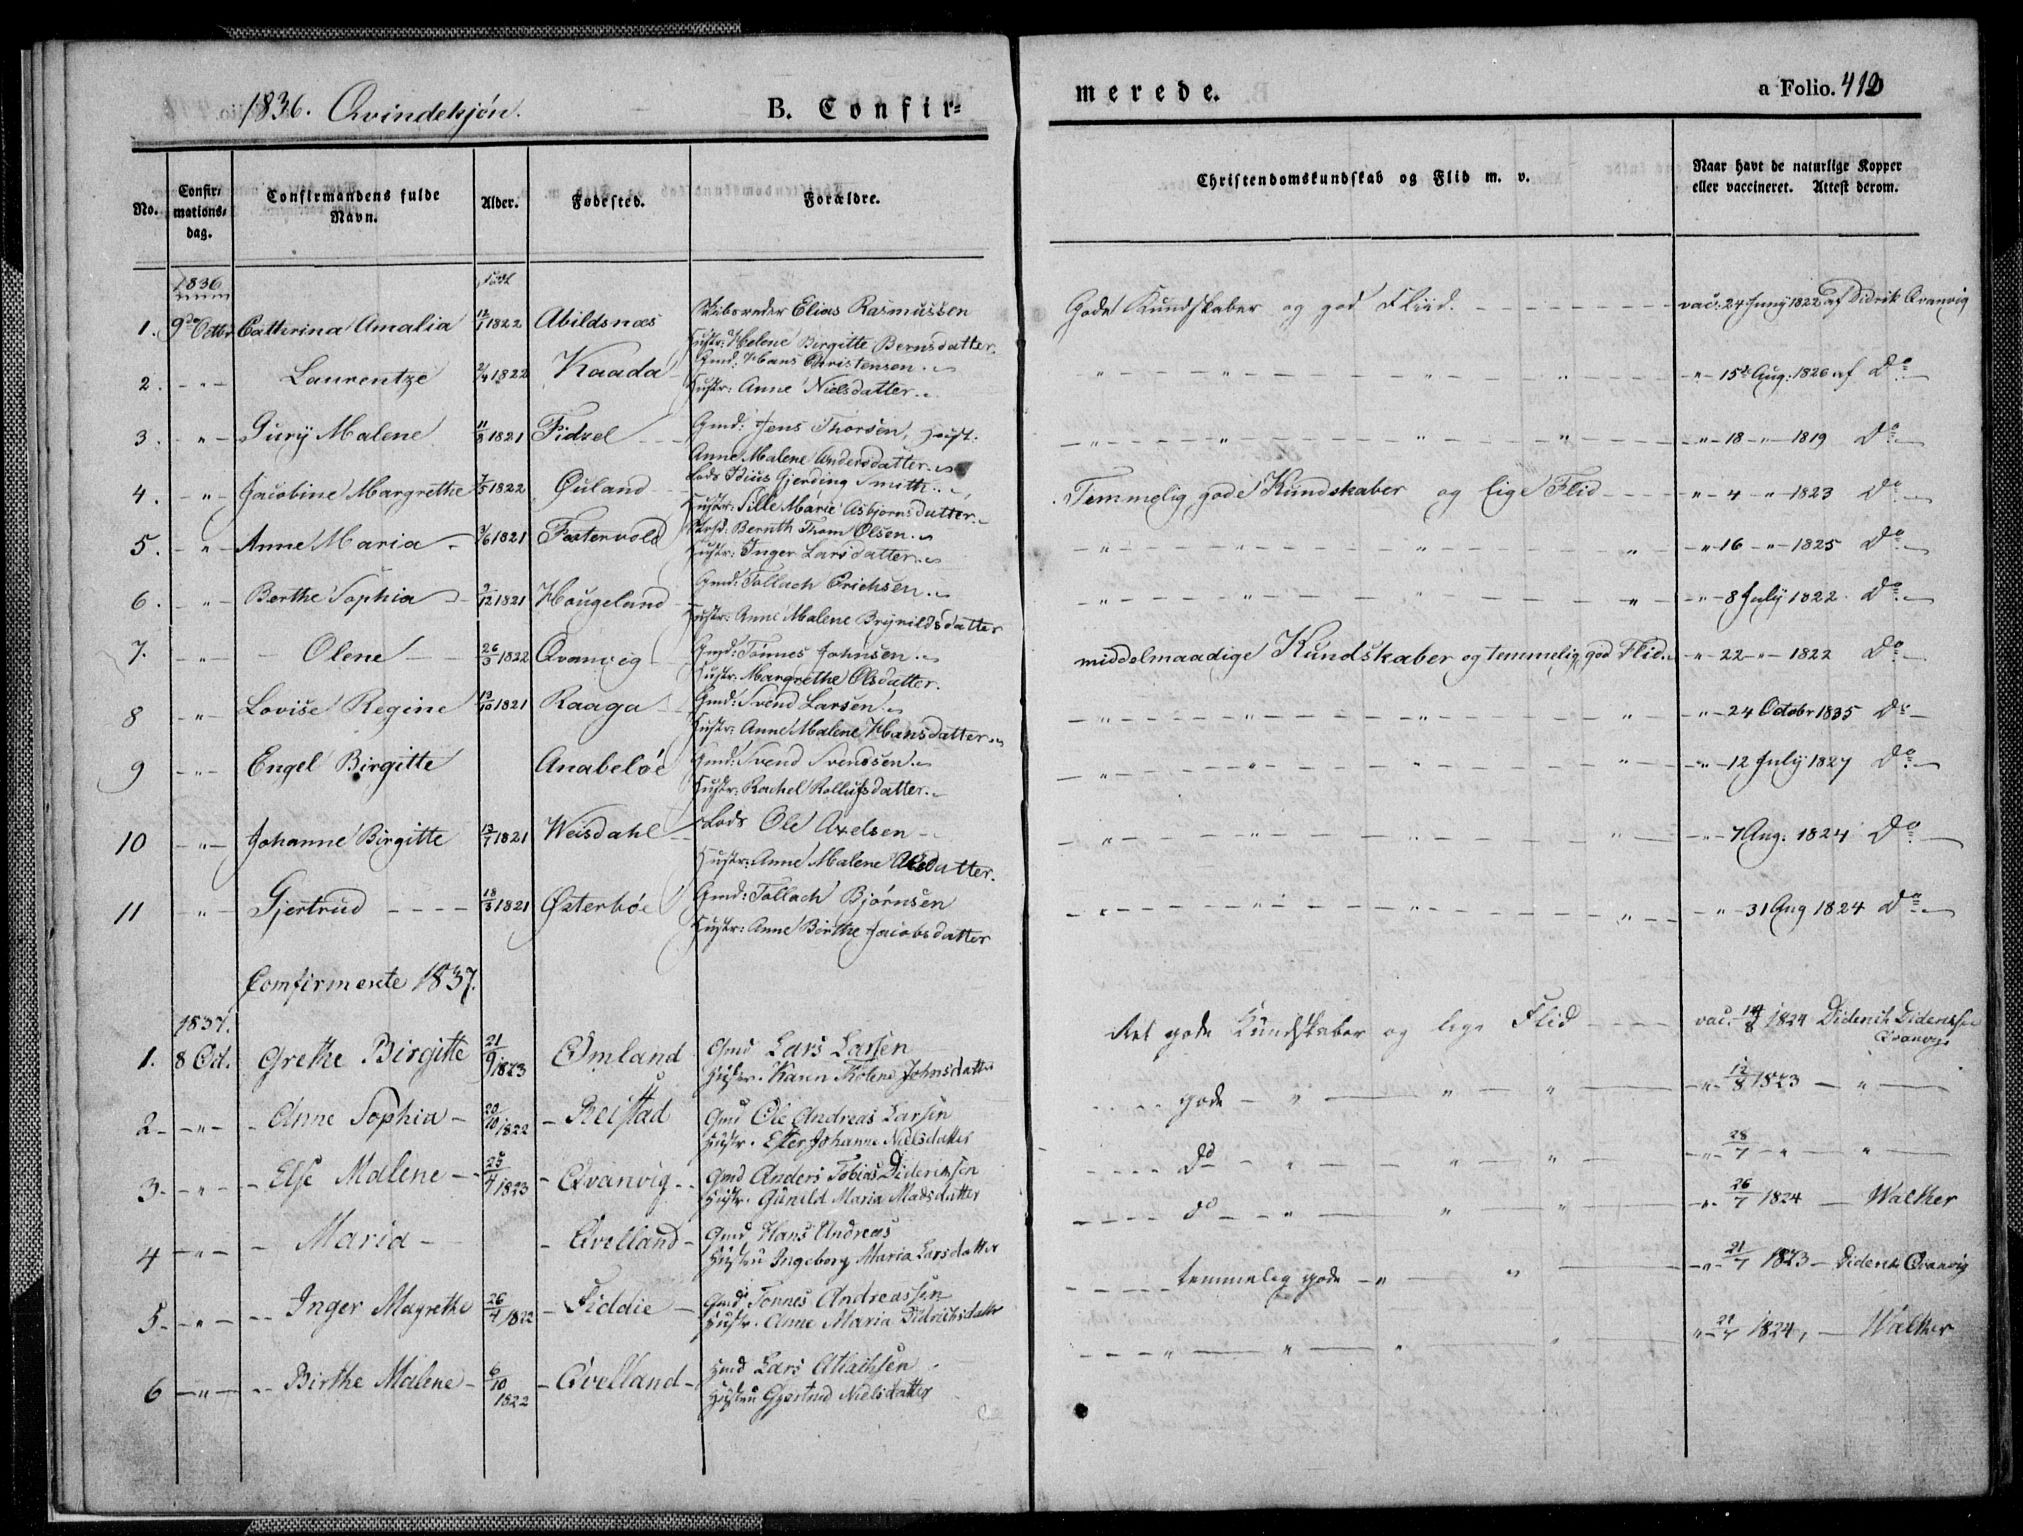 1836. Qvindekjøn. B. Confirmerede. a Folio. 412
No. Confirmationsdag. Confirmandens fulde Navn. Alder. Fødested. Forældre. Christendomskundskab og Flid m. v. Naar havt de naturlige Kopper eller vaccineret. Attest derom.
1836 født
1. 9de Octbr Catherina Amalia 12/1 1822 Abildsnæs Skibsreder Elias Rasmussen
Hustr: Helene Birgitte Berntsdatter. Gode Kundskaber og god Fliid. vac: 24 Juny 1822 af Didrik Qvanvig
2. - " - Laurentze 2/4 1822 Kaada Gmd: Hans Christensen
Hustr: Anne Nielsdatter " " " " - " - 15de Aug: 1826 af Do
3. - " - Gurij Malene 11/3 1821 Fidsel Gmd: Jens Thorsen, Hust:
Anne Malene Andersdatter " " " " - " - 18 - " - 1819 Do
4. - " - Jacobine Margrethe 7/5 1822 Øuland Lods Gjerding Smith
Hustr: Sille Marie Asbjørnsdatter Temmelig gode Kundskaber og lige Flid " - 4 - " - 1823 Do
5. - " - Anne Maria 3/6 1821 Fostervold Bernth Thom Olsen
Hustr: Inger Larsdatter " " " " - " 16 - " - 1825 Do
6. - " - Berthe Sophia 9/12 1821 Hougeland Gmd: Tollach Erichsen
Hustr: Anne Malene Brynildsdatter " " " " - " - 8 July 1822 Do
7. - " - Olene 26/3 1822 Qvanvig Gmd: Tønnes Johnsen
Hustr: Margrethe Olsdatter. middelmaadige Kundskaber og temmelig god Flid " - 22 - " - 1822 Do
8 - " - Lovise Regine 13/10 1821 Raaga Gmd: Svend Larsen
Hustr: Anne Malene Hansdatter " " " " " - 24 Octobr 1835 Do
9 - " - Engel Birgitte Anabeløe Gmd: Svend Svendsen
Hustr: Rachel Rollufsdatter " " " " - 12 July 1827 Do
10 - " - Johanne Birgitte 13/7 1821 Weisdahl Lods Ole Axelsen
Hustr: Anne Malene " " " " - " - 7 Aug: 1824 Do
11 - " - Gjertrud 18/3 1821 Østerbøe Gmd: Tollach Bjørnsen
Hustr: Anne Birthe Jacobsdatter " " " " - " - 31 Aug 1824 Do
Comfirmerete 1837.
1837.
1. 8 Oct. Grethe Birgitte 21/9 1823 Omland Gmd Lars Larsen
Hustr. Karen Johnsdatter Ret gode Kundskaber og lige Flid vac. 14/8 1824 Diderik Dideriksen Qvanvig
2 - " - Anne Sophia 20/10 1822 Reistad Gmd Ole Andreas Larsen
Hustr. Ester Johanne Nielsdatter gode " " " " 12/8 1823 "
3 - " - Else Malene 25/4 1823 Qvanvig Gmd Anders Tobias Dideriksen
Hustr. Gunild Maria Madsdatter Do " " " " 28/7 " "
4 - " - Maria Qvelland Gmd Hans Andreas
Hustru Ingeborg Maria Larsdatter Do " " " " 26/7 1824 Walker
5 - " - Inger Magrethe 26/4 1822 Fiddie Gmd Tønnes Andreassen
Hustr. Anne Maria Didrichsdatter temmelig gode " " " 21/7 1823 Diderik Qvanvig
6 - " - Birthe Malene 6/10 1822 Qvelland Gmd Lars Atlachsen
Hustru Gjertrud Nielsdatter " " " " " 21/7 1824, Walker